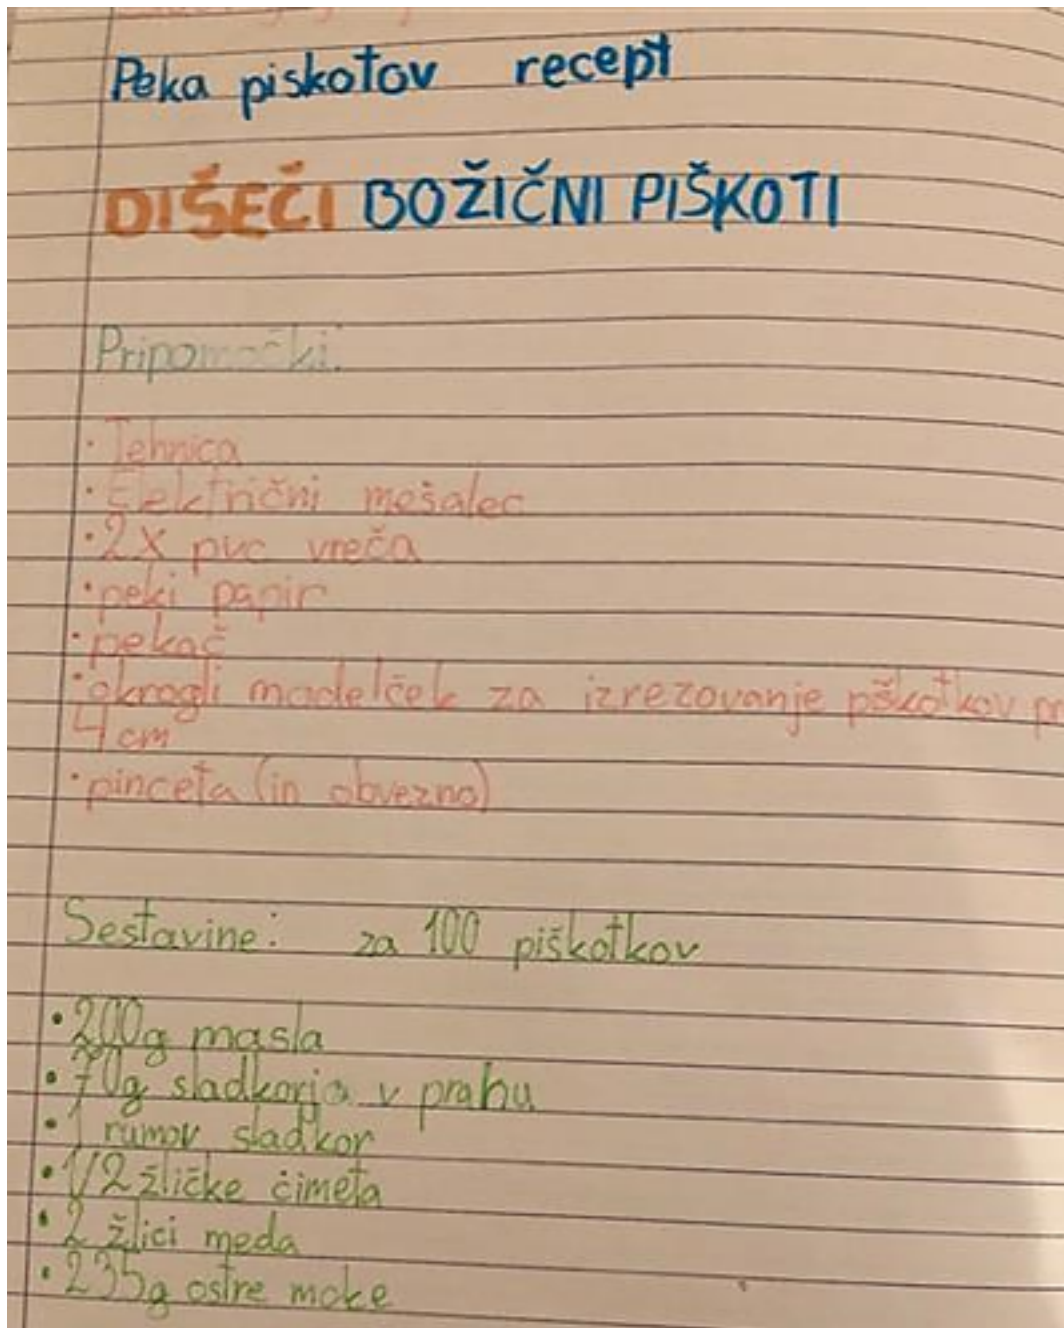 Peka piskotov recept
DIŠEČI BOŽIČNI PIŠKOTI
Pripomočki:
• Tehnica
• Električni mešalec
• 2X pvc vreča
• peki papir
• pekač
• okrogli madelček za izrezovanje pškotkov
4 cm
• pinceta (in obvezno)
Sestavine: za 100 piškotkov
• 200g masla
• 70g sladkorja v prahu
• 1 rumov sladkor
• 1/2 žličke cimeta
• 2 žlici meda
• 235g ostre moke